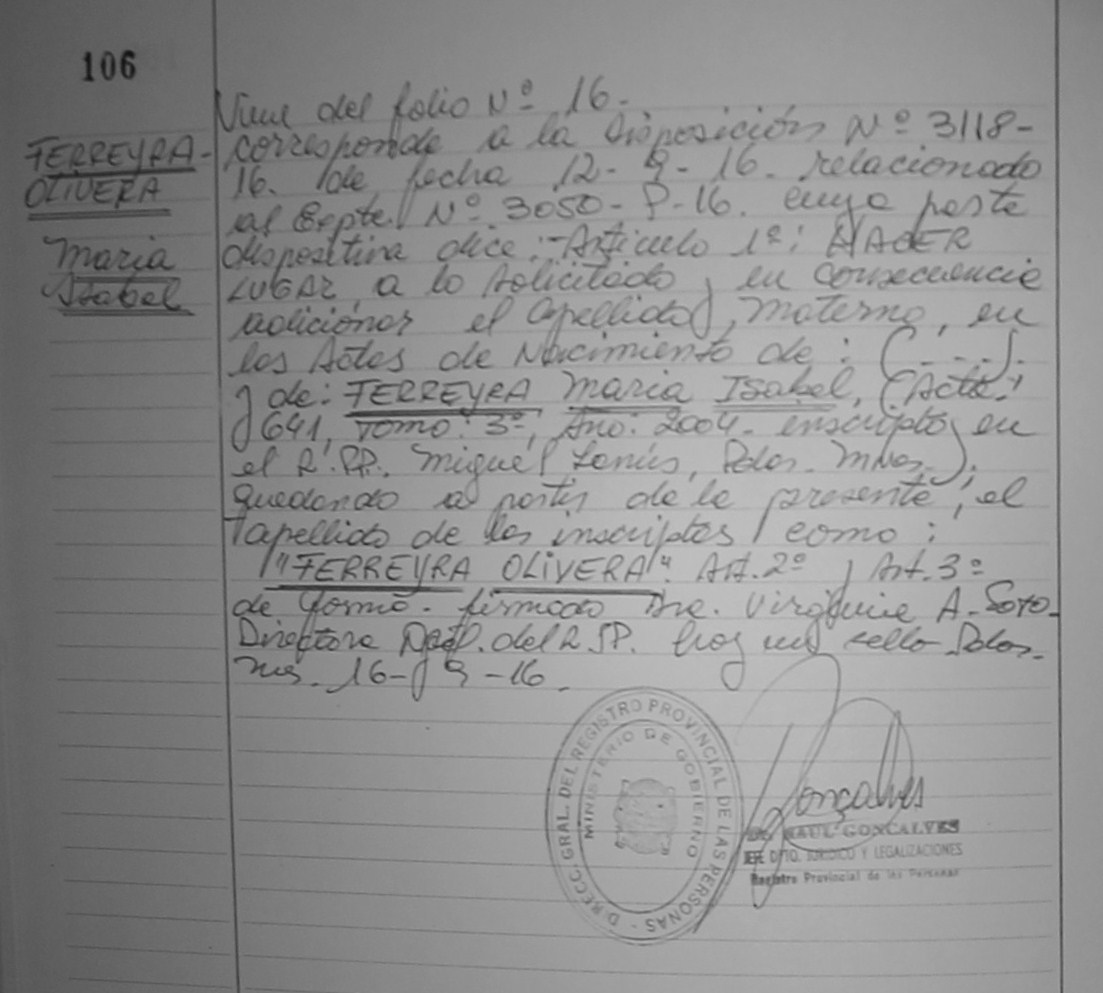 106
FERREYRA-
OLIVERA
Maria
Isabel
Viene del folio Nº 16.
corresponde a la Disposición Nº 3118-
16. de fecha 12-9-16. relacionado
al Expte. Nº 3050-P-16. cuya parte
dispositiva dice:-Articulo 1º: HACER
LUGAR, a lo solicitado y en consecuencia
adicionar el apellido materno, en
las Actas de Nacimiento de: (....).
y de: FERREYRA Maria Isabel, (Acta:
641, Tomo: 3º, Año: 2004- inscripto en
el R.PP. Miguel Lanús, Pdas. Mnes.);
quedando a partir de la presente, el
apellido de los inscriptos como:
"FERREYRA OLIVERA". Art. 2º y Art. 3º
de forma. firmado Dra. Virginia A. Soto-
Directora del R.PP. hay un sello-Pdas.-
Mnes. 16-9-16.
DIRECC. GRAL. DEL REGISTRO PROVINCIAL DE LAS PERSONAS
MINISTERIO DE GOBIERNO
Gonçalves
RAUL GONCALVES
JEFE DPTO. JURIDICO Y LEGALIZACIONES
Registro Provincial de las Personas